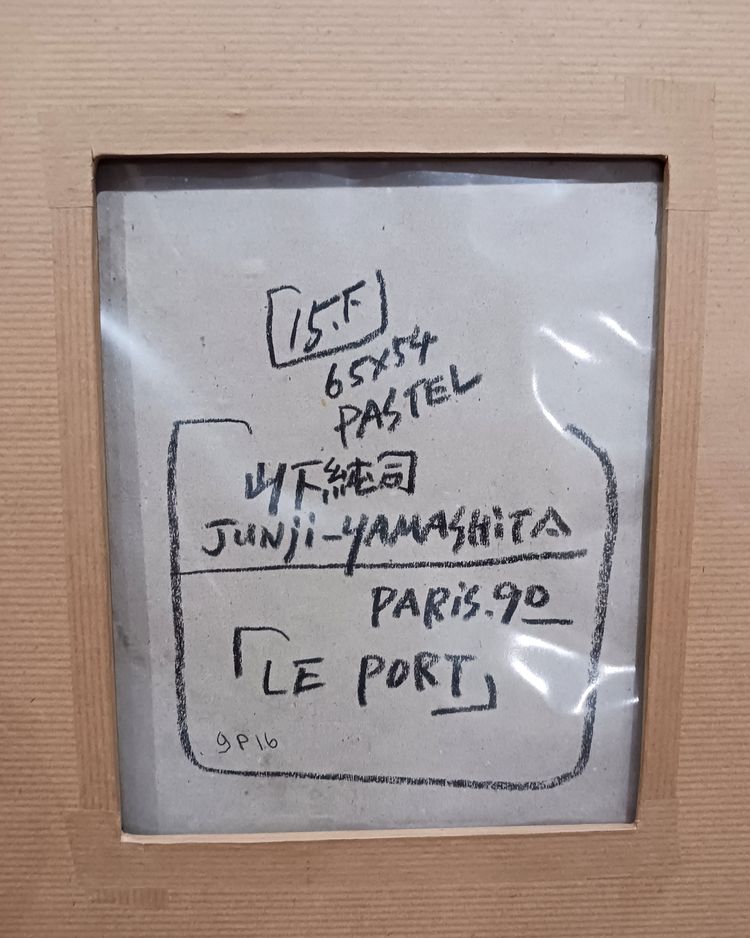 15.F
65x54
PASTEL
山下純司
JUNji-YAMASHiTA
PARiS.90
「LE PORT」
9P16